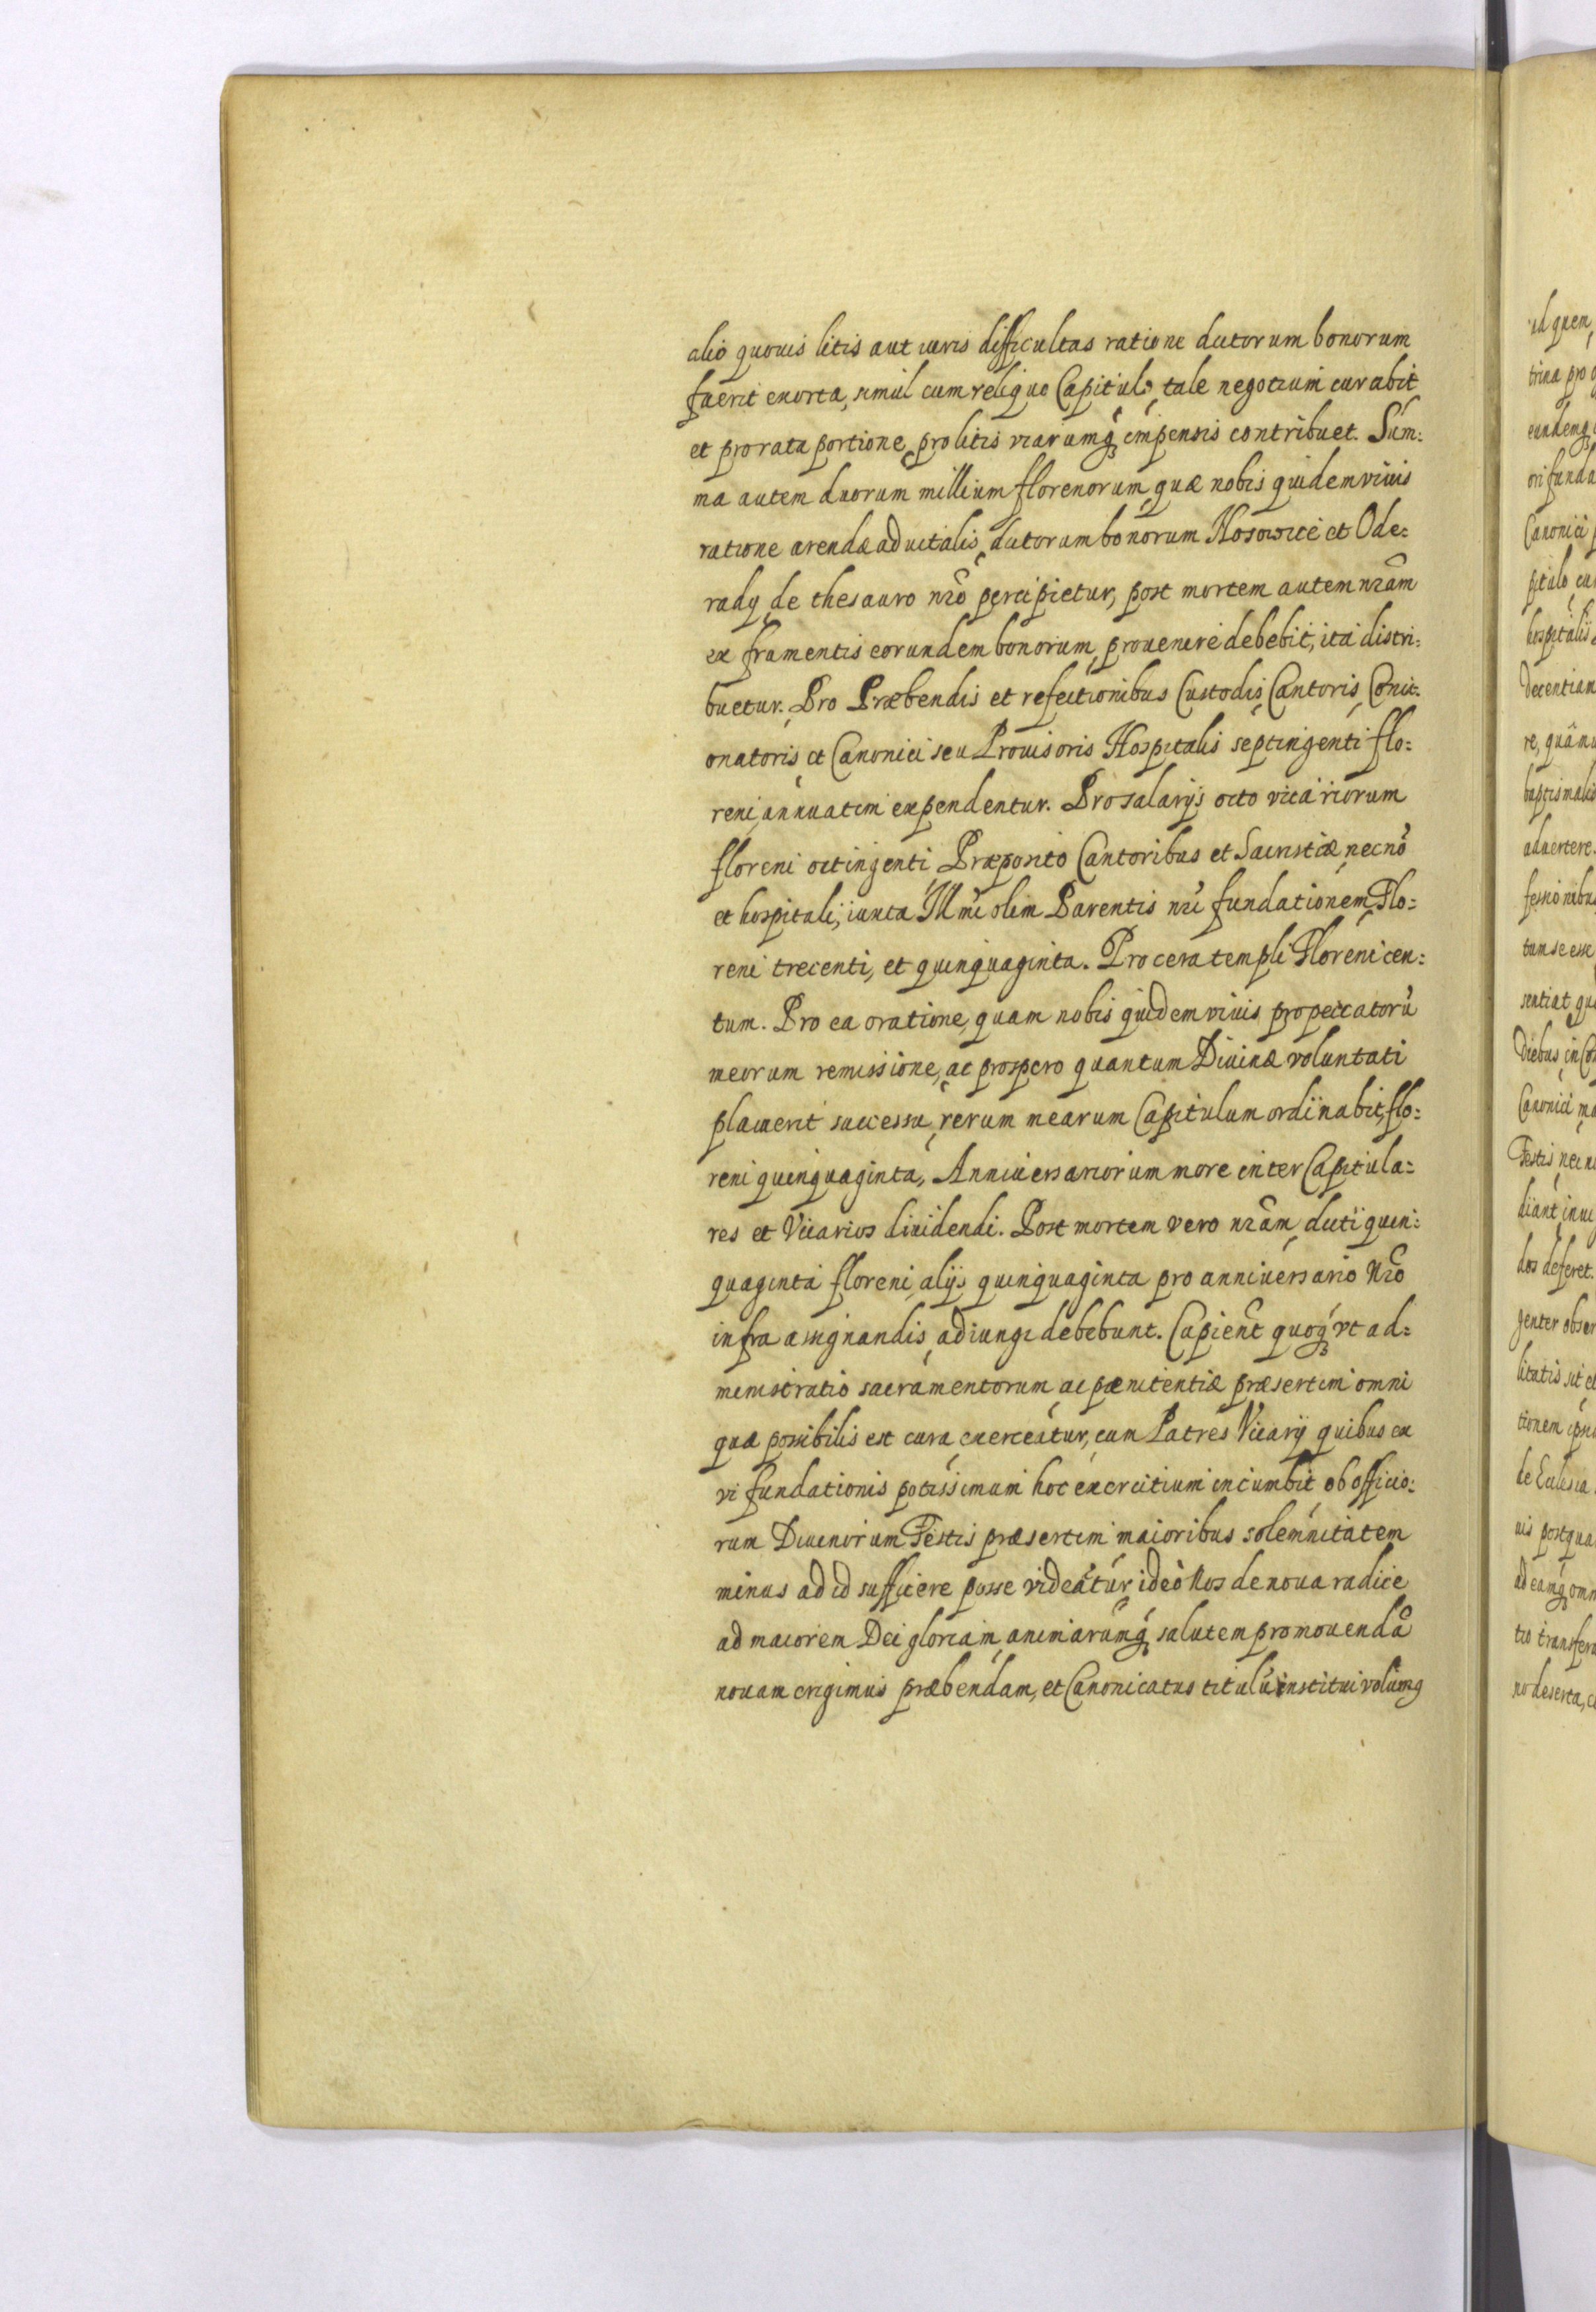 alio quouis litis aut iuris difficultas ratione dictorum bonorum
fuerit exorta, simul cum reliquo Capitulo, tale negotium curabit
et pro rata portione, pro litis viarumq́ꝫ impensis contribuet. Sum:
ma autem duorum millium florenorum, quæ nobis quidem viuis
ratione arendæ aduitalis, dictorum bonorum Hosowice et Ode:
rady, de thesauro nr̃o percipietur, post mortem autem nr̃am
ex frumentis eorundem bonorum, prouenire debebit, ita distri:
buetur. Pro Præbendis et refectionibus Custodis, Cantoris, Conci:
onatoris, et Canonici seu Prouisoris Hospitalis septingenti flo:
reni, annuatim expendentur. Pro salarijs octo vicariorum
floreni octingenti, Præposito Cantoribus et Sacristiæ necnõ
et hospitali, iuxta Illmi olim Parentis nr̃i fundationem, Flo:
reni trecenti, et quinquaginta. Pro cera templi Floreni cen:
tum. Pro ea oratione, quam nobis quidem viuis, pro peccatorũ
meorum remissione, ac prospero quantum Diuinæ voluntati
placuerit successu, rerum mearum Capitulum ordinabit, flo:
reni quinquaginta, Anniuersariorum more inter Capitula:
res et Vicarios diuidendi. Post mortem vero nr̃am, dicti quin:
quaginta floreni, alijs quinquaginta pro anniuersario Nr̃o
infra assignandis, adiungi debebunt. Cupient̃ quoq́ꝫ vt ad:
ministratio sacramentorum, ac pœnitentiæ præsertim omni
quæ possibilis est cura, exerceatur, cum Patres Vicarij quibus ex
vi fundationis potissimum hoc exercitium incumbit, ob officio:
rum Diuinorum Festis præsertim maioribus solemnitatem
minus ad id sufficere posse videãtur, ideò Nos de noua radice
ad maiorem Dei gloriam, animarumq́ꝫ salutem promouendã
nouam erigimus præbendam, et Canonicatus titulũ institui volumꝰ